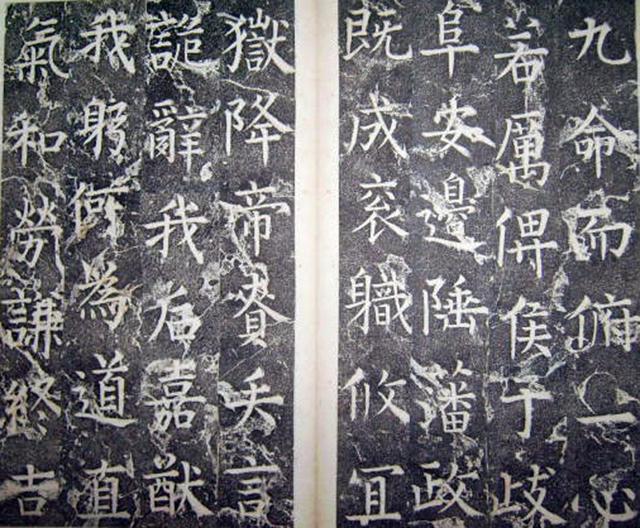 九命而一心
若厲俾侯于歧
阜安邊陲藩政
既成衮職攸宜
嶽降帝賚矢言
詭辭我后嘉猷
我躬何為道直
氣和勞謙終吉